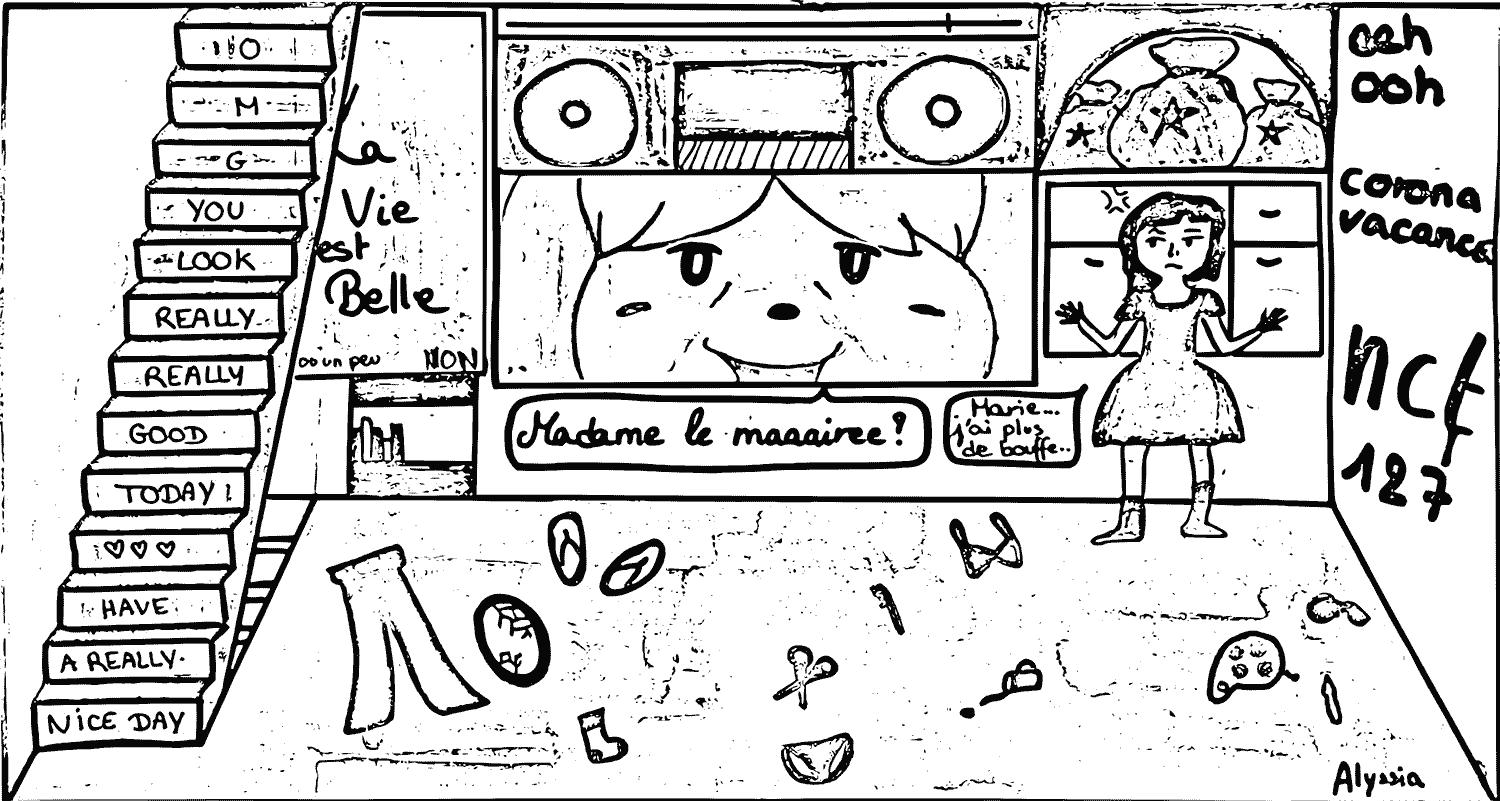 O
M
G
YOU
LOOK
REALLY
REALLY
GOOD
TODAY!
♡♡♡
HAVE
A REALLY
NiCE DAY
La
Vie
est
Belle
ou un peu NON
Madame le maaairee?
Marie...
j'ai plus
de bouffe..
ooh
corona
vacances
187
Alyssia